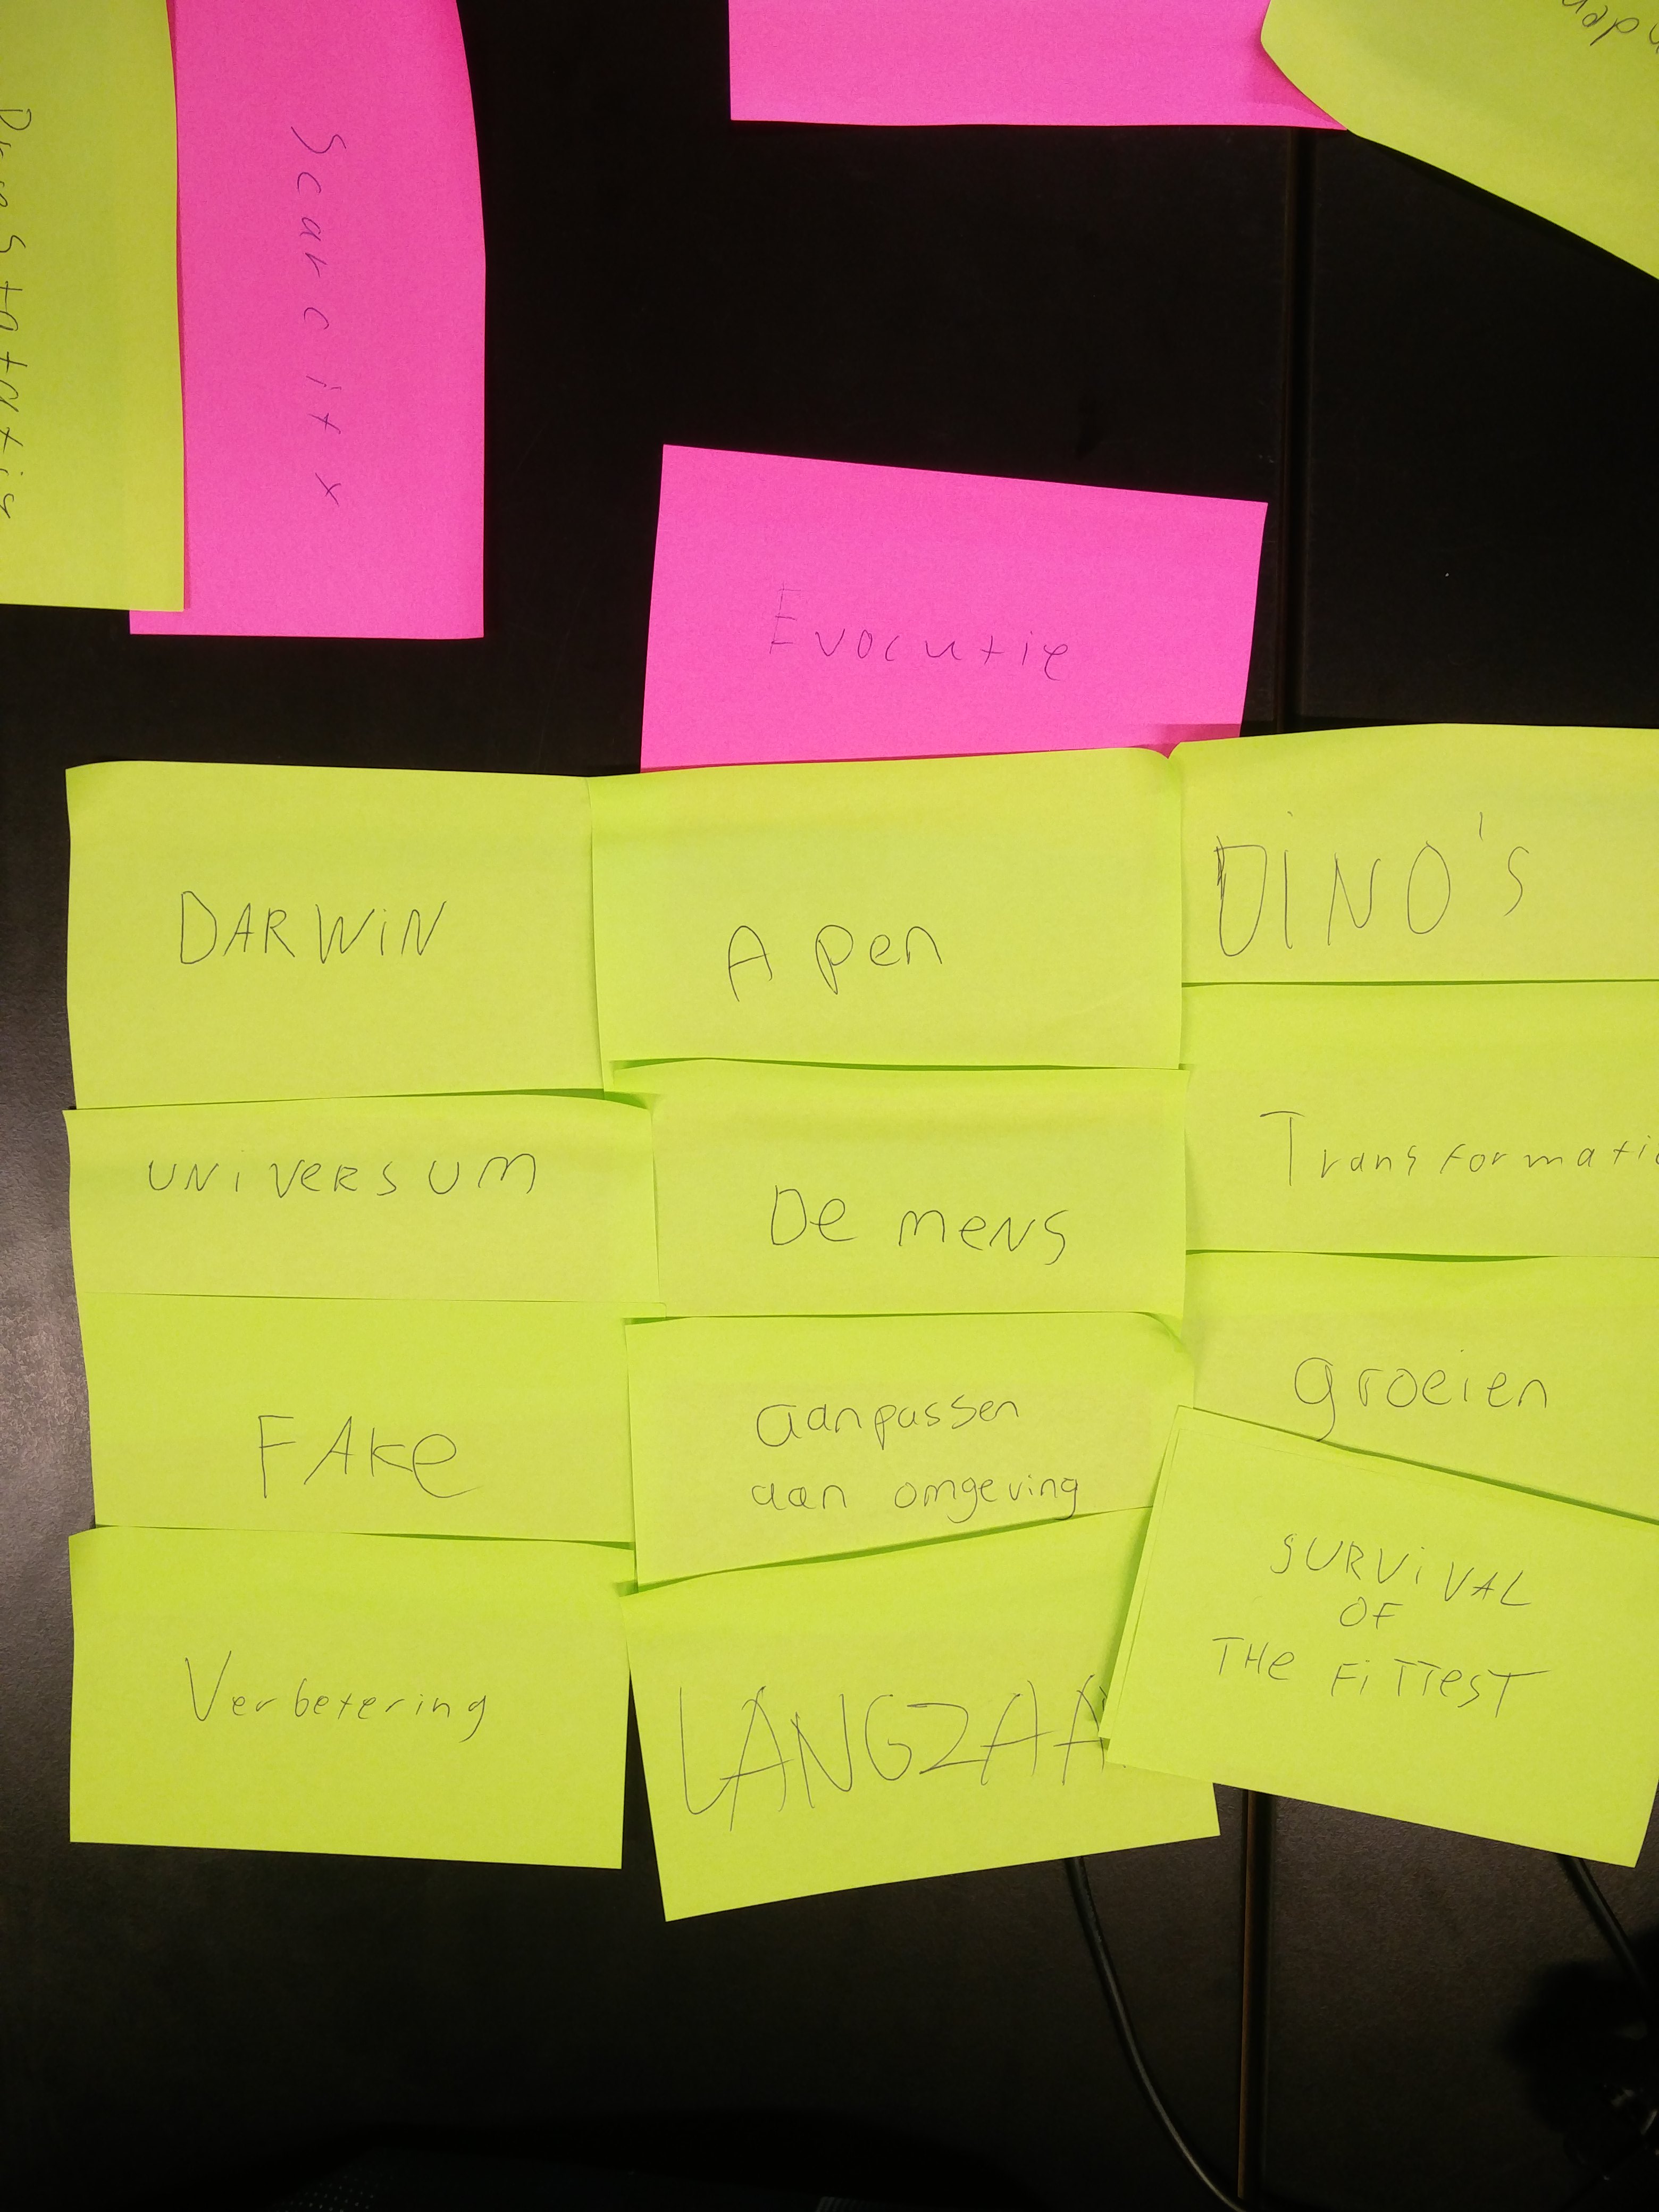 Scarcity
Evolutie
DARWiN
Apen
DiNO'S
UNiVeRSUM
De meNS
Transformatie
FAKe
aanpassen
aan omgeving
groeien
Verbetering
LANGZAA
SURViVAL
OF
THe FiTTesT